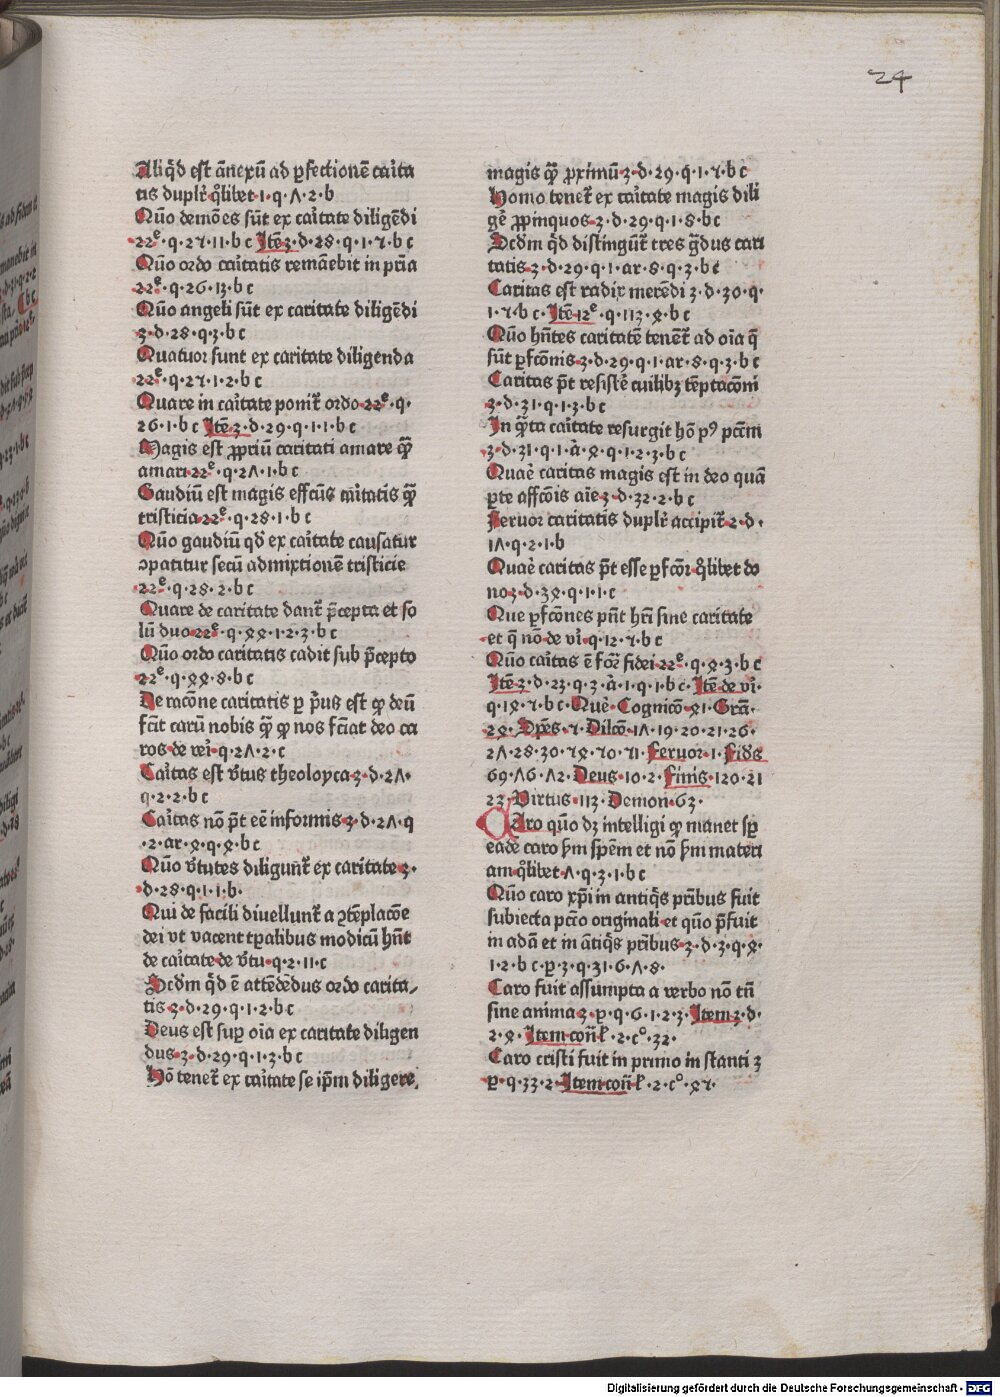 24
Aliq̃d est ãnexũ ad ꝑfectionẽ cãita
tis duplr̃ q̃libet·1·q·ʌ·2·b
Quõ demões sũt ex cãitate diligẽdi
22ᵉ·q·2⁊·11·b c Itẽ 3·d·28·q·1·⁊·b c
Quõ ordo cãitatis remãebit in pr̃ia
22ᵉ·q·26·13·b c
Quõ angeli sũt ex caritate diligẽdi
3·d·28·q·3·b c
Quatuor sunt ex caritate diligenda
22ᵉ·q·2⁊·1·2·b c
Quare in cãitate ponit᷑ ordo·22ᵉ·q·
26·1·b c Itẽ 3·d·29·q·1·1·b c
Magis est ꝓpriũ caritati amare q̃ꝫ
amari·22ᵉ·q·2ʌ·1·b c
Gaudiũ est magis effcũs cãitatis q̃ꝫ
tristicia·22ᵉ·q·28·1·b c
Quõ gaudiũ qd̃ ex cãitate causatur
ↄpatitur secũ admixtionẽ tristicie
22ᵉ·q·28·2·b c
Quare de caritate dant᷑ p̃cepta et so
lũ duo·22ᵉ·q·ꝝꝝ·1·2·3·b c
Quõ ordo caritatis cadit sub p̃cepto
22ᵉ·q·ꝝꝝ·8·b c
De racõne caritatis ꝑ p̃us est ꝙ deũ
fc̃it carũ nobis q̃ꝫ ꝙ nos fc̃iat deo ca
ros·de vẽi·q·2ʌ·2·c
Cãitas est v̑tus theoloyca·3·d·2ʌ·
q·2·2·b c
Cãitas nõ p̃t eẽ informis·3·d·2ʌ·q
·2·ar·ꝝ·q·ꝝ·b c
Quõ v̑tutes diligunt᷑ ex caritate·3·
d·28·q·1·1·b·
Qui de facili diuellunt᷑ a ↄtẽplacõe
dei vt vacent tꝑalibus modicũ hñt
de cãitate·de v̑tu·q·2·11·c
Scd̃m q̃d ẽ attẽdẽdus ordo carita⸗
tis·3·d·29·q·1·2·b c
Deus est suꝑ oĩa ex caritate diligen
dus·3·d·29·q·1·3·b c
Hõ tenet᷑ ex cãitate se ip̃m diligere,
magis q̃ꝫ ꝓximũ·3·d·29·q·1·⁊·b c
Homo tenet᷑ ex cãitate magis dili
gẽ ꝓpinquos·3·d·29·q·1·8·b c
Scd̃m q̃d distingũt᷑ tres g̃dus cari
tatis·3·d·29·q·1·ar·8·q·3·b c
Caritas est radix merẽdi 3·d·30·q·
1·⁊·b c·Itẽ 12ᵉ·q·113·ꝝ·b c
Quõ hñtes caritatẽ tenent᷑ ad oĩa q̃
sũt ꝑfcõnis·3·d·29·q·1·ar·8·q·3·b c
Caritas p̃t resistẽ cuilibꝫ tẽptacõni
3·d·31·q·1·3·b c
In q̃ta cãitate resurgit hõ p⁹ pctm̃
3·d·31·q·1·a·ꝝ·q·1·2·3·b c
Quaẽ caritas magis est in deo quã
ꝑte affcõis aĩe·3·d·32·2·b c
Feruor caritatis duplr̃ accipit᷑·2·d·
1ʌ·q·2·1·b
Quaẽ caritas p̃t esse ꝑfcõr̃ q̃libet do
no·3·d·3ꝝ·q·1·1·c
Que ꝑfcõnes pñt hr̃i sine caritate
et q̃ nõ·de vĩ·q·12·ⁿ·b c
Quõ cãitas ẽ fõr̃ fidei·22ᵉ·q·ꝝ·3·b c
Itẽ 3·d·23·q·3·a·1·q·1·b c·Itẽ de vĩ·
q·1ꝝ·ⁿ·b c·Quẽ·Cognicõ·ꝝ1·Grã·
2ꝝ·Dp̃es·ⁿ·Dilcõ·1ʌ·19·20·21·26·
2ʌ·28·30·ⁿꝝ·ⁿ0·ⁿ1·Feruor·1·Fides
69·ʌ6·ʌ2·Deus·10·2·Finis·120·21
22·Virtus·113·Demon·63·
CAro quõ dꝫ intelligi ꝙ manet sꝑ
eadẽ caro s̃m spẽm et nõ s̃m materi
am·q̃libet·ʌ·q·3·1·b c
Quõ caro xp̃i in antiq̃s pr̃ibus fuit
subiecta pctõ originali·et quõ p̃fuit
in adã et in ãtiq̃s pr̃ibus·3·d·3·q·ꝝ·
1·2·b c·p·3·q·31·6·ʌ·8·
Caro fuit assumpta a verbo nõ tñ
sine anima·3·p·q·6·1·2·3·Item·3·d·
2·ꝝ·Item·coñ·l̃·2·c°·32·
Caro cristi fuit in primo instanti 3
p·q·33·2·Item·coñ·l̃·2·c°·ꝝⁿ·
Digitalisierung gefördert durch die Deutsche Forschungsgemeinschaft - DFG